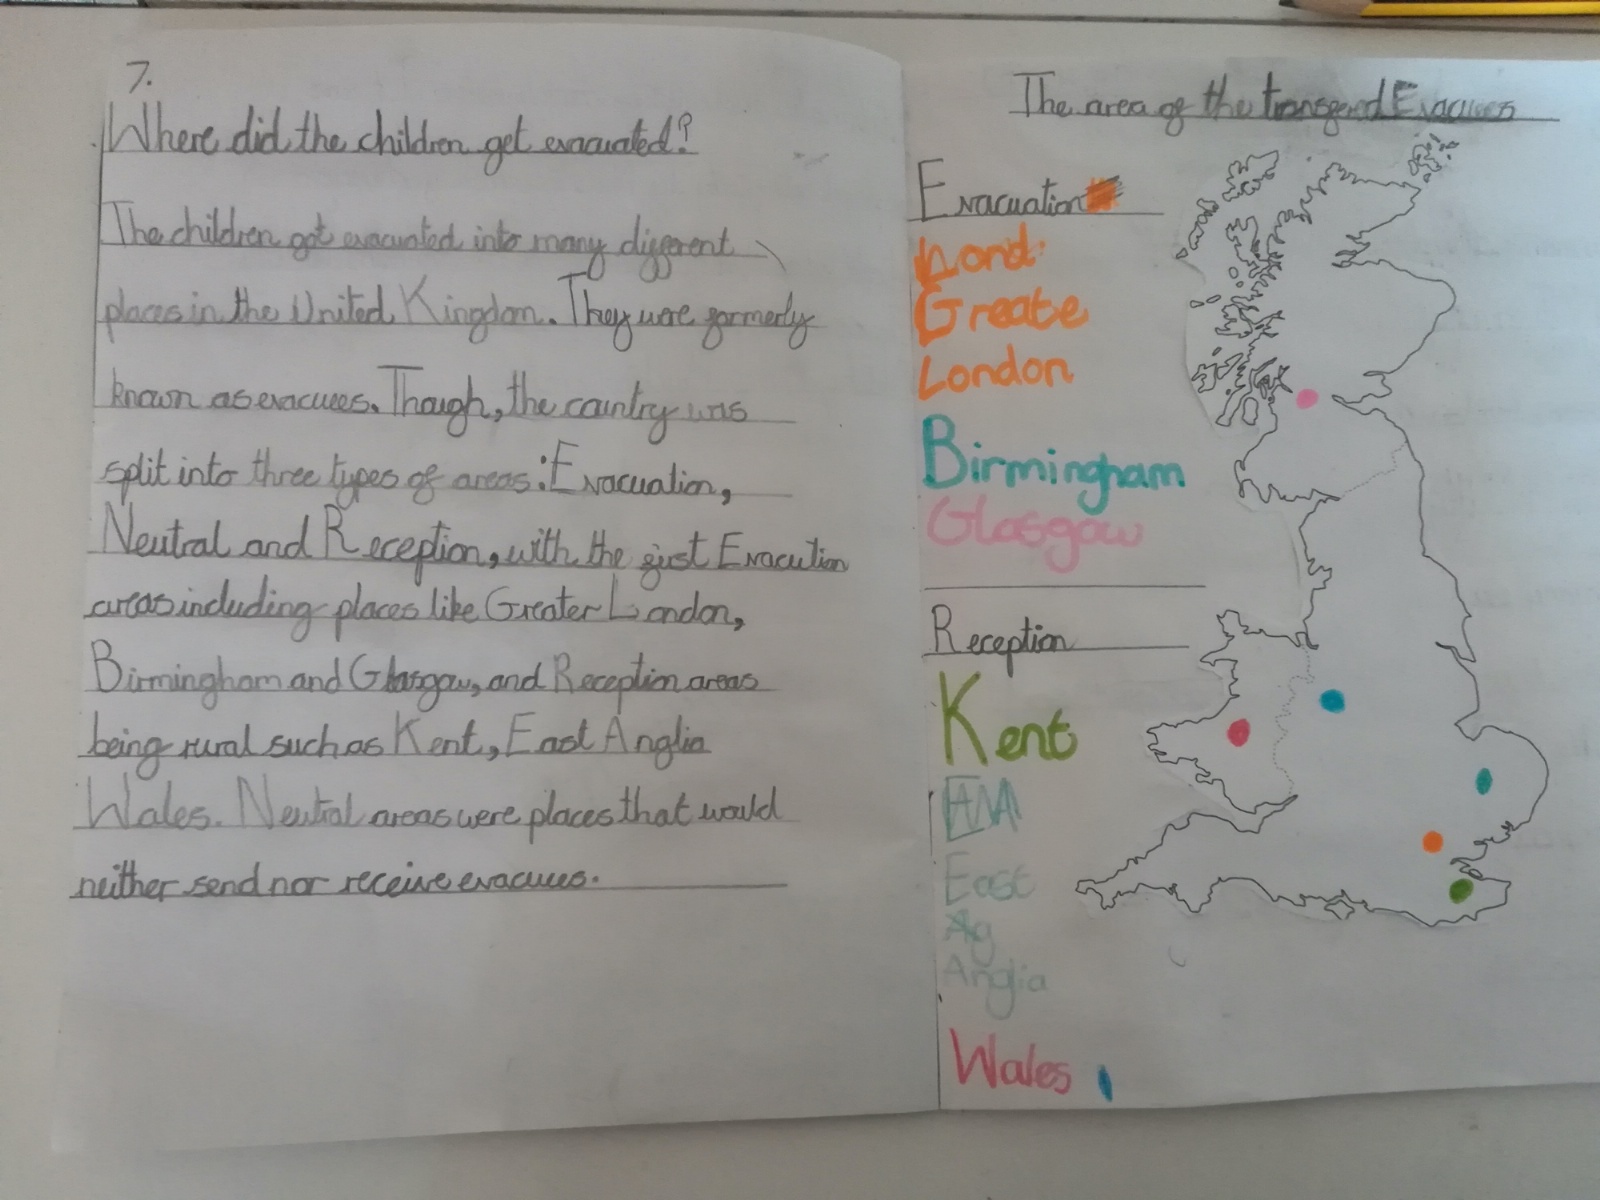 7.
Where did the children get evacuated?
The children got evacuated into many different
places in the United Kingdom. They were formerly
known as evacuees. Though, the country was
split into three types of areas: Evacuation,
Neutral and Reception, with the first Evacution
areas including places like Greater London,
Birmingham and Glasgow, and Reception areas
being rural such as Kent, East Anglia
Wales. Neutral areas were places that would
neither send nor receive evacuees.
The area of the Evacuees
Evacuation
Lond
Greate
London
Birmingham
Glasgow
Reception
Kent
East
Ag
Anglia
Wales